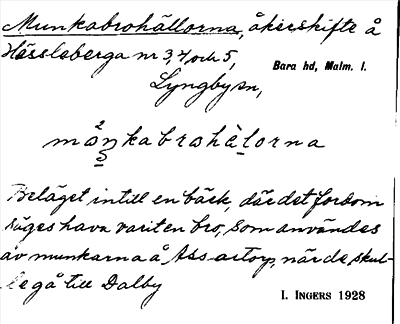 Munkabrohällorna, åkerskifte å
Hässleberga nr 3, 4 och 5,
Bara hd, Malm. l.
Lyngby sn,
månkabrohàlorna
Beläget intill en bäck, där det fordom
säges hava varit en bro, som användes
av munkarna å Assartorp, när de skul-
le gå till Dalby
I. INGERS 1928